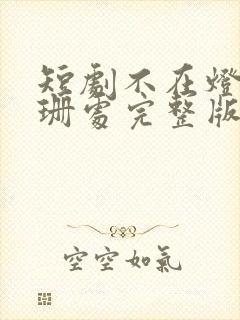 短劇不在燈
珊處完整版
空空如氣